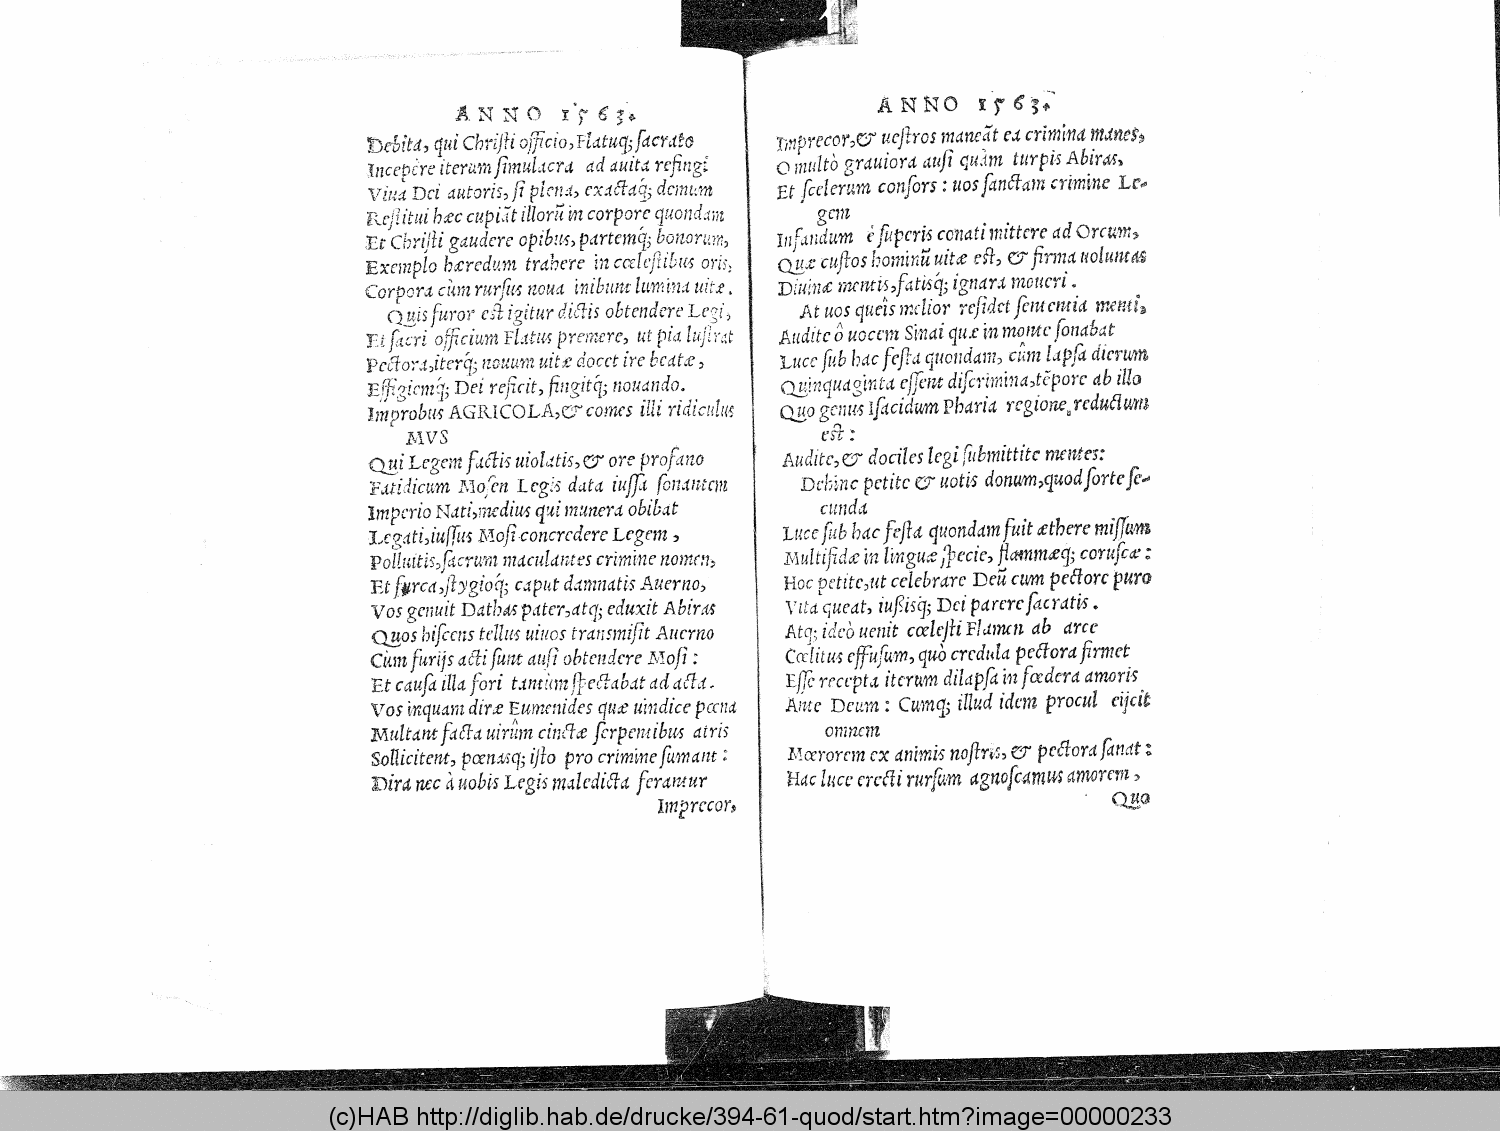 ANNO 1563.
Debita, qui Chriſti officio, Flatuq; ſacrato
Incepère iterum ſimulacra ad auita refingi
Viua Dei autoris, ſi plena, exactaq́; demum
Reſtitui hæc cupiãt illorũ in corpore quondam
Et Chriſti gaudere opibus, partemq́; bonorum,
Exemplo hæredum trahere in cœleſtibus oris,
Corpora cùm rurſus noua inibunt lumina uitæ.
Quis furor eſt igitur dictis obtendere Legi,
Et ſacri officium Flatus premere, ut pia luſtrat
Pectora, iterq́; nouum uitæ docet ire beatæ,
Effigiemq́; Dei reficit, fingitq́; nouando.
Improbus AGRICOLA, & comes illi ridiculus
MVS
Qui Legem factis uiolatis, & ore profano
Fatidicum Moſen Legis data iuſſa ſonantem
Imperio Nati, medius qui munera obibat
Legati, iuſſus Moſi concredere Legem,
Polluitis, ſacrum maculantes crimine nomen,
Et furca, ſtygioq́; caput damnatis Auerno,
Vos genuit Dathas pater, atq; eduxit Abiras
Quos hiſcens tellus uiuos transmiſit Auerno
Cùm furijs acti ſunt auſi obtendere Moſi:
Et cauſa illa fori tantùm ſpectabat ad acta.
Vos inquam diræ Eumenides quæ uindice pœna
Multant facta uirûm cinctæ ſerpentibus atris
Sollicitent, pœnasq; iſto pro crimine ſumant:
Dira nec à uobis Legis maledicta ferantur
Imprecor,
ANNO 1563.
Imprecor, & ueſtros maneãt ea crimina manes,
O multò grauiora auſi quàm turpis Abiras,
Et ſcelerum conſors: uos ſanctam crimine Le-
gem
Infandum è ſuperis conati mittere ad Orcum,
Quæ cuſtos hominũ uitæ eſt, & firma uoluntas
Diuinæ mentis, fatisq́; ignara moueri.
At uos queîs melior reſidet ſententia menti,
Audite ô uocem Sinai quæ in monte ſonabat
Luce ſub hac feſta quondam, cûm lapſa dierum
Quinquaginta eſſent diſcrimina, tẽpore ab illo
Quo genus Iſacidum Pharia regione reductum
eſt:
Audite, & dociles legi ſubmittite mentes:
Dehinc petite & uotis donum, quod ſorte ſe-
cunda
Luce ſub hac feſta quondam fuit æthere miſſum
Multifidæ in linguæ ſpecie, flammæq; coruſcæ:
Hoc petite, ut celebrare Deũ cum pectore puro
Vita queat, iußisq; Dei parere ſacratis.
Atq; ideò uenit cœleſti Flamen ab arce
Cœlitus effuſum, quò credula pectora firmet
Eſſe recepta iterum dilapſa in fœdera amoris
Ante Deum: Cumq; illud idem procul eijcit
omnem
Mœrorem ex animis noſtris, & pectora ſanat:
Hac luce erecti rurſum agnoſcamus amorem,
Quo
(c)HAB http://diglib.hab.de/drucke/394-61-quod/start.htm?image=00000233